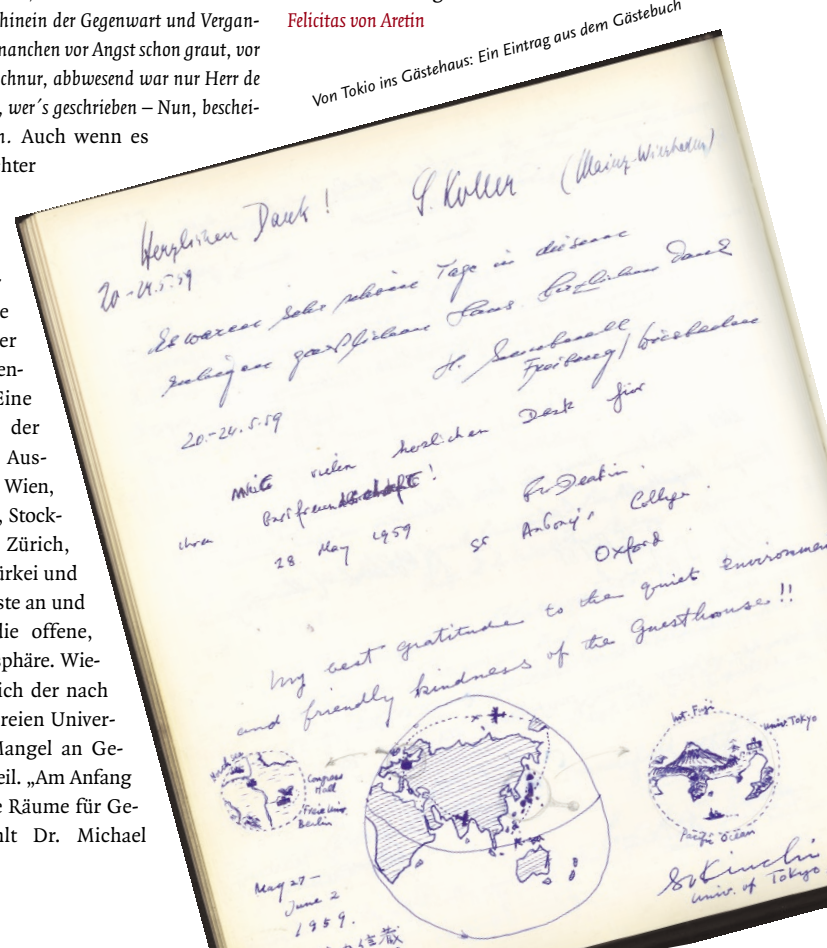 hinein der Gegenwart und Vergan-
manchen vor Angst schon graut, vor
chnur, abbwesend war nur Herr de
, wer´s geschrieben – Nun, beschei-
n. Auch wenn es
hter
e
er
en-
Eine
der
Aus-
Wien,
, Stock-
Zürich,
ürkei und
ste an und
die offene,
sphäre. Wie-
ich der nach
reien Univer-
Mangel an Ge-
eil. „Am Anfang
e Räume für Ge-
hlt Dr. Michael
Felicitas von Aretin
Von Tokio ins Gästehaus: Ein Eintrag aus dem Gästebuch
Herzlichen Dank! S. Koller (Mainz-Wiesbaden)
20.-24.5.59
Es waren sehr schöne Tage in diesem
ruhigen gastlichen Haus. Herzlichen Dank
H.
Freiburg/Wiesbaden
20.-24.5.59
Mit vielen herzlichen Dank für
ihren Gastfreundschaft!
28 May 1959
St Antony's College
Oxford
My best gratitude to the quiet environmen
and friendly kindness of the Guesthouse!!
Congress
Hall
Freie Univ.
Berlin
Mt. Fuji
Univ. Tokyo
Pacific Ocean
May 27–
June 2
1959.
S. Kikuchi
Univ. of Tokyo